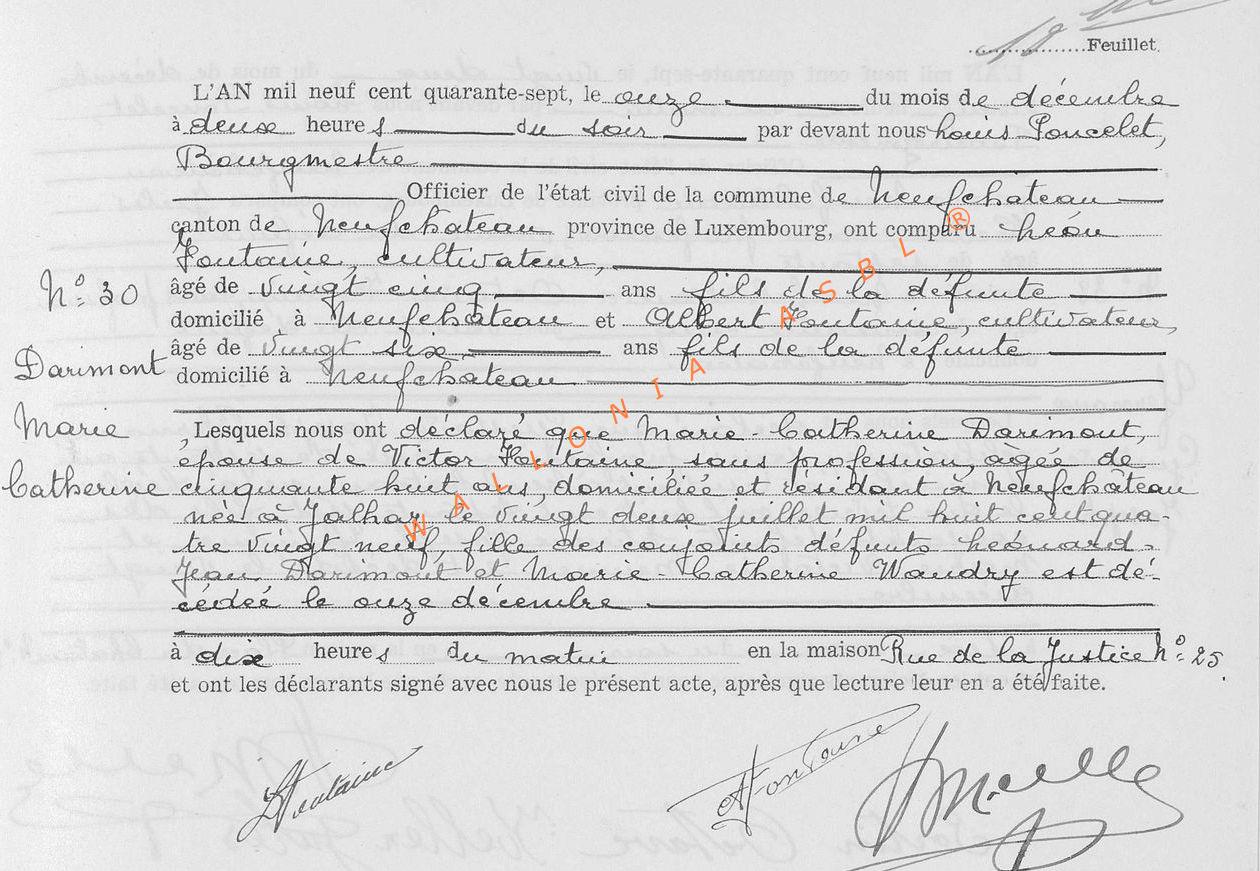 Feuillet.
L'AN mil neuf cent quarante-sept, le onze du mois de décembre
à deux heures du soir par devant nous Louis Poncelet,
Bourgmestre
Officier de l'état civil de la commune de Neufchâteau
canton de Neufchâteau province de Luxembourg, ont comparu Léon
Fontaine, cultivateur,
N° 30
âgé de vingt cinq ans fils de la défunte
domicilié à Neufchâteau et Albert Fontaine, cultivateur,
Darimont
âgé de vingt six ans fils de la défunte
domicilié à Neufchâteau
Marie
Lesquels nous ont déclaré que Marie-Catherine Darimont,
épouse de Victor Fontaine, sans profession, agée de
Catherine
cinquante huit ans, domiciliée et résidant à Neufchâteau
née à Jalhay le vingt deux juillet mil huit cent qua-
tre vingt neuf, fille des conjoints défunts Léonard-
Jean Darimont et Marie-Catherine Wandry est dé-
cédée le onze décembre
à dix heures du matin en la maison Rue de la Justice N° 25.
et ont les déclarants signé avec nous le présent acte, après que lecture leur en a été faite.
L Fontaine
A Fontaine
WALLONIA ASBL ®